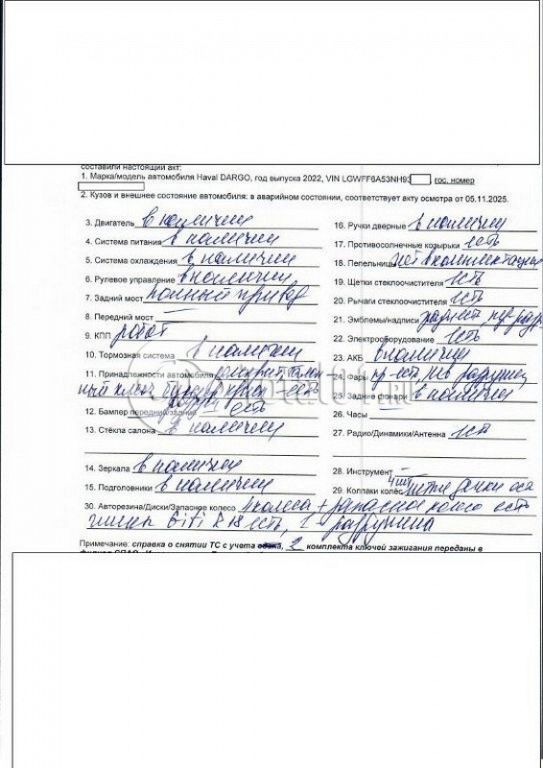 составили настоящий акт:
1. Марка/модель автомобиля Haval DARGO, год выпуска 2022, VIN LGWFF6A53NH93 , гос. номер
2. Кузов и внешнее состояние автомобиля: в аварийном состоянии, соответствует акту осмотра от 05.11.2025.
3. Двигатель в наличии
4. Система питания в наличии
5. Система охлаждения в наличии
6. Рулевое управление в наличии
7. Задний мост полный привод
8. Передний мост —
9. КПП робот
10. Тормозная система в наличии
11. Принадлежности автомобиля
ный ключ есть
12. Бампер передний/задний есть
13. Стёкла салона в наличии
14. Зеркала в наличии
15. Подголовники в наличии
16. Ручки дверные в наличии
17. Противосолнечные козырьки есть
18. Пепельницы нет в комплектации
19. Щетки стеклоочистителя есть
20. Рычаги стеклоочистителя есть
21. Эмблемы/надписи
22. Электрооборудование есть
23. АКБ в наличии
24. Фары
25. Задние фонари в наличии
26. Часы
27. Радио/Динамики/Антенна есть
28. Инструмент —
29. Колпаки колёс 4 шт
30. Авторезина/Диски/Запасное колесо 4 колеса + запасное колесо есть
R18 есть, 1
Примечание: справка о снятии ТС с учета , 2 комплекта ключей зажигания переданы в